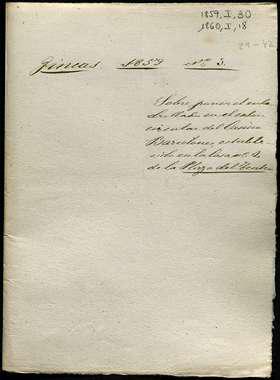 1859, I, 30
1860, I, 18
29-42
Fincas. 1859 Nº 3.
Sobre poner el
en el salon
del Casino
Barcelones,
cido en la casa nº 2
de la Plaza del Teatro